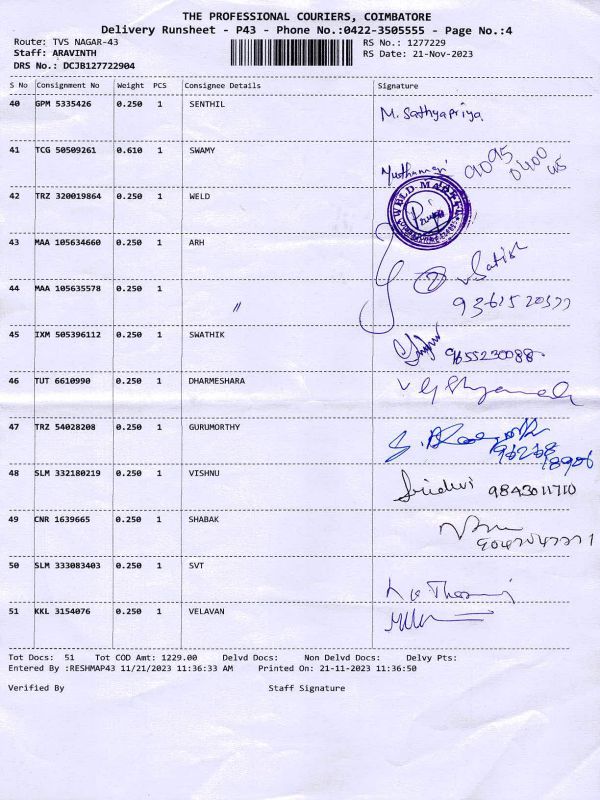 THE PROFESSIONAL COURIERS, COIMBATORE
Delivery Runsheet - P43 - Phone No.:0422-3505555 - Page No.:4
Route: TVS NAGAR-43
RS No.: 1277229
Staff: ARAVINTH
RS Date: 21-Nov-2023
DRS No.: DCJB127722904
S No Consignment No Weight PCS Consignee Details Signature
40 GPM 5335426 0.250 1 SENTHIL M. Sathyapriya
41 TCG 50509261 0.610 1 SWAMY 9095 0400 45
42 TRZ 320019864 0.250 1 WELD WELD
43 MAA 105634660 0.250 1 ARH 2 Satish
44 MAA 105635578 0.250 1 〃
45 IXM 505396112 0.250 1 SWATHIK 9655230088
46 TUT 6610990 0.250 1 DHARMESHARA
47 TRZ 54028208 0.250 1 GURUMORTHY
48 SLM 332180219 0.250 1 VISHNU Sridevi 9843011710
49 CNR 1639665 0.250 1 SHABAK
50 SLM 333083403 0.250 1 SVT
51 KKL 3154076 0.250 1 VELAVAN
Tot Docs: 51 Tot COD Amt: 1229.00 Delvd Docs: Non Delvd Docs: Delvy Pts:
Entered By :RESHMAP43 11/21/2023 11:36:33 AM Printed On: 21-11-2023 11:36:50
Verified By Staff Signature